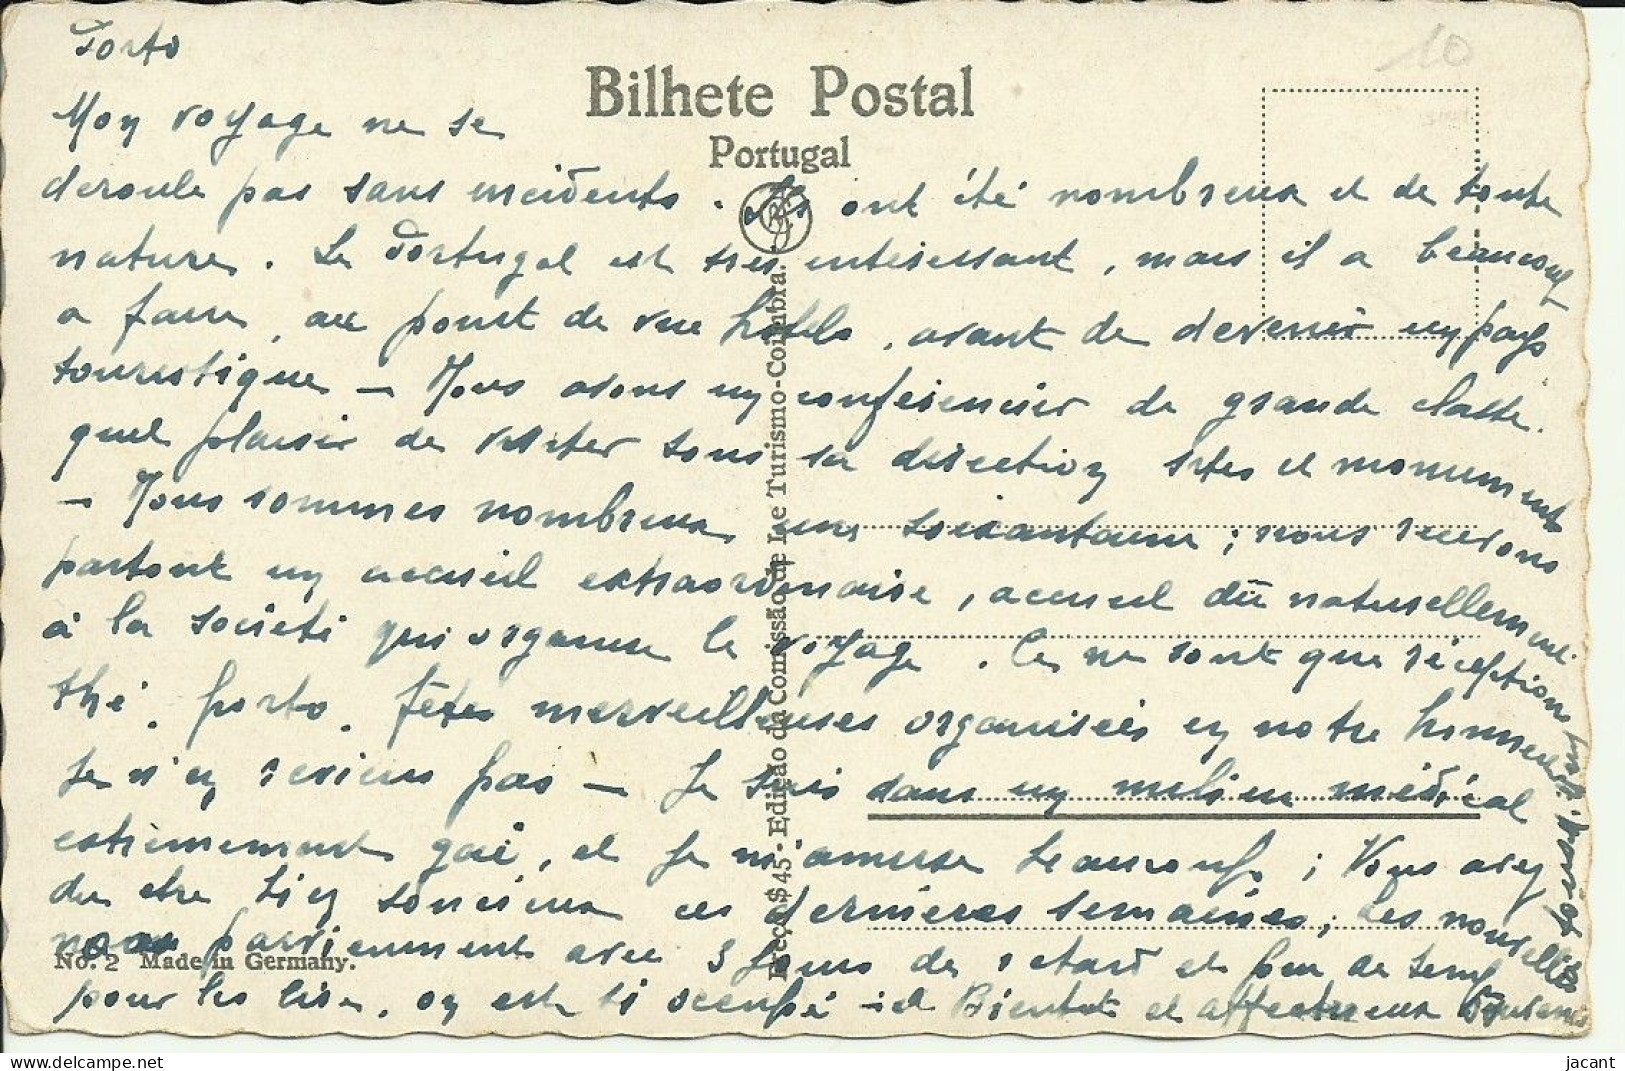 Porto
Bilhete Postal
Portugal
Mon voyage ne se
deroule pas sans incidents. Ils ont été nombreux et de toute
nature. Le Portugal est très interessant, mais il a beaucoup
a faire, au point de vue hotels, avant de devenir un pays
touristique — Nous avons un conférencier de grande classe.
quel plaisir de visiter sous sa direction sites et monuments
— Nous sommes nombreux une soixantaine ; nous recevons
partout un accueil extraordinaire, accueil dû naturellement
à la société qui organise le voyage. Ce ne sont que réceptions
thé, porto, fêtes merveilleuses organisées en notre honneur
Je n'en reviens pas — Je suis dans un milieu médical
extrêmement gai, et je m'amuse beaucoup ; Vous avez
du etre bien soucieux ces dernières semaines ; les nouvelles
nous parviennent avec 3 jours de retard et peu de temps
pour les lire, on est si occupé
Bientot et affectueux
Edição da Comissão de I. e Turismo-Coimbra.
No. 2 Made in Germany.
10
jacant